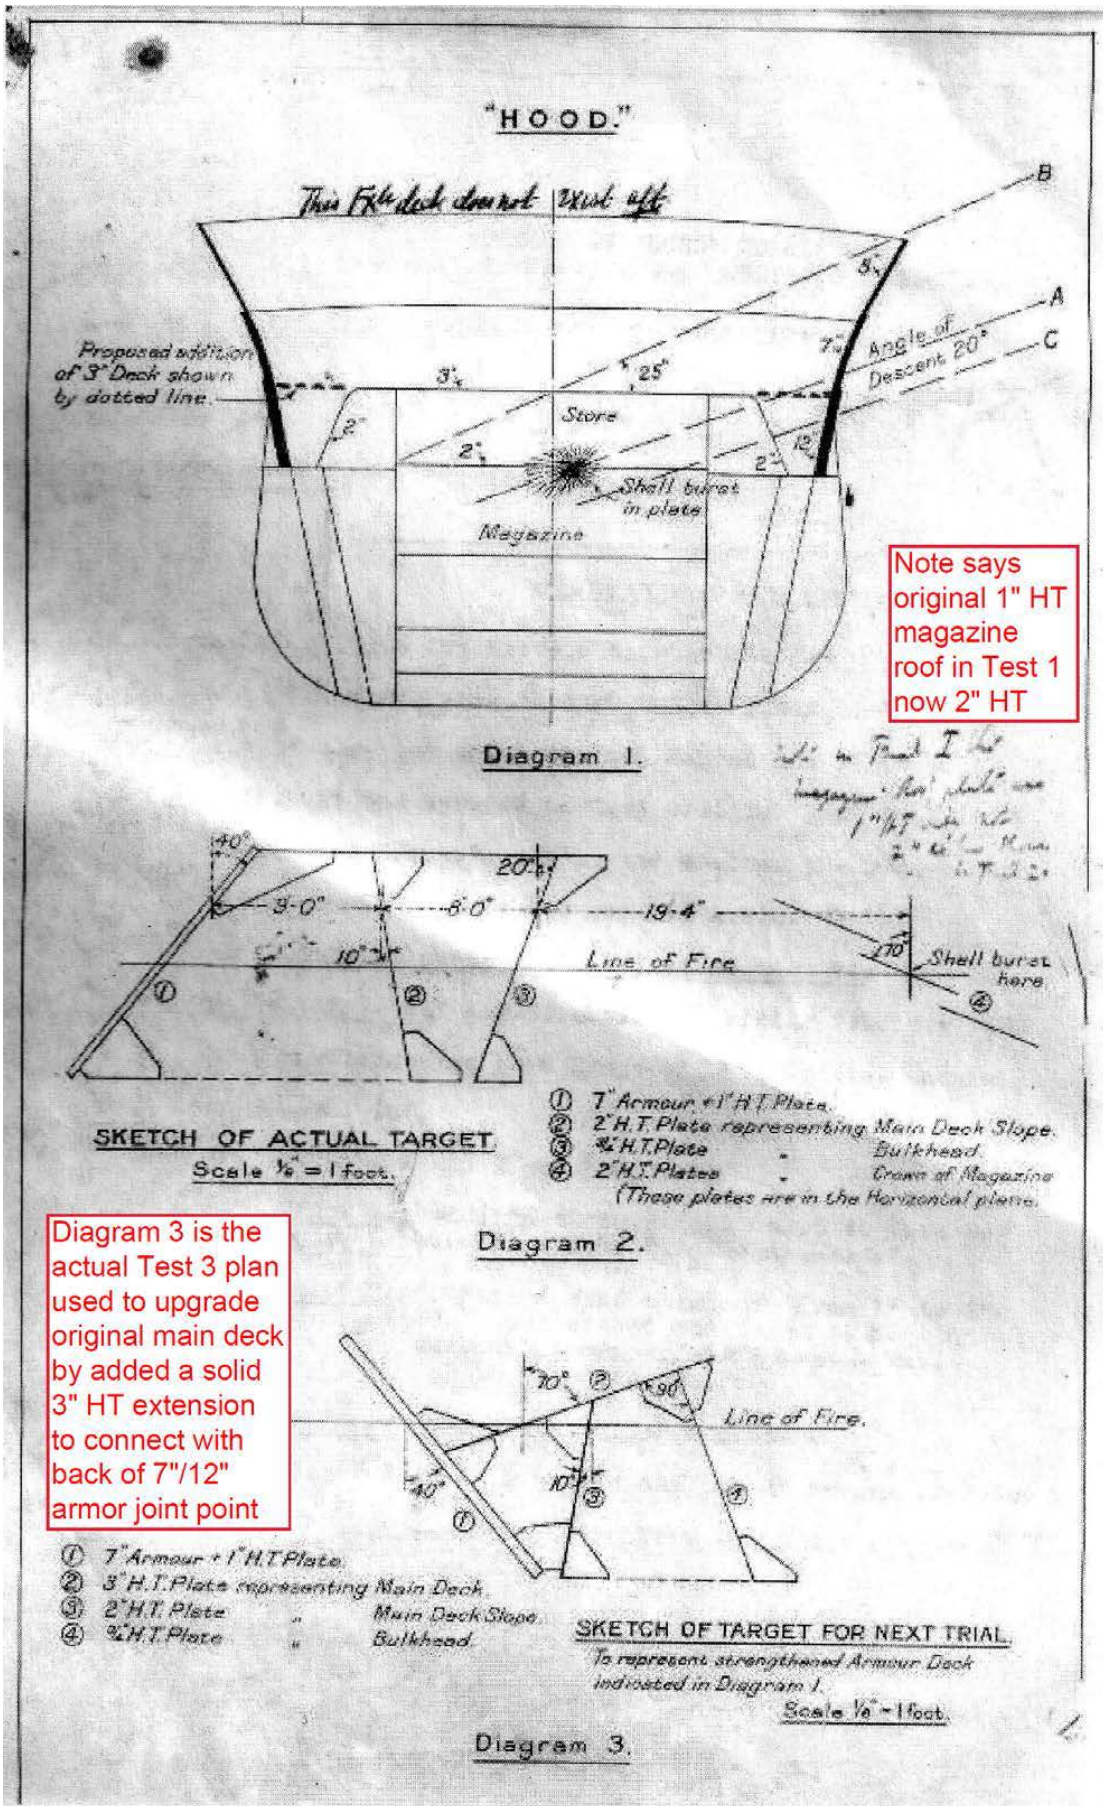 "HOOD."
This Fxle deck does not exist aft
B
5"
A
7"
Angle of
Descent 20°
C
Proposed addition
of 3" Deck shown
by dotted line.
3"
25°
Store
2"
2"
2"
12"
Shell burst
in plate
Magazine
Note says
original 1" HT
magazine
roof in Test 1
now 2" HT
Diagram 1.
in Trial I the
magazine
1" HT
2"
40°
20°
9'-0"
8'-0"
19'-4"
10°
Line of Fire
70°
Shell burst
here
①
②
③
④
① 7" Armour + 1" H.T. Plate.
② 2" H.T. Plate representing Main Deck Slope.
③ ¾" H.T. Plate " Bulkhead.
④ 2" H.T. Plates " Crown of Magazine
(These plates are in the Horizontal plane.
SKETCH OF ACTUAL TARGET.
Scale ⅛" = 1 foot.
Diagram 2.
Diagram 3 is the
actual Test 3 plan
used to upgrade
original main deck
by added a solid
3" HT extension
to connect with
back of 7"/12"
armor joint point
70°
②
90°
Line of Fire.
40°
10°
①
③
④
① 7" Armour + 1" H.T. Plate.
② 3" H.T. Plate representing Main Deck.
③ 2" H.T. Plate " Main Deck Slope.
④ ¾" H.T. Plate " Bulkhead.
SKETCH OF TARGET FOR NEXT TRIAL.
To represent strengthened Armour Deck
indicated in Diagram 1.
Scale ⅛" = 1 foot.
Diagram 3.